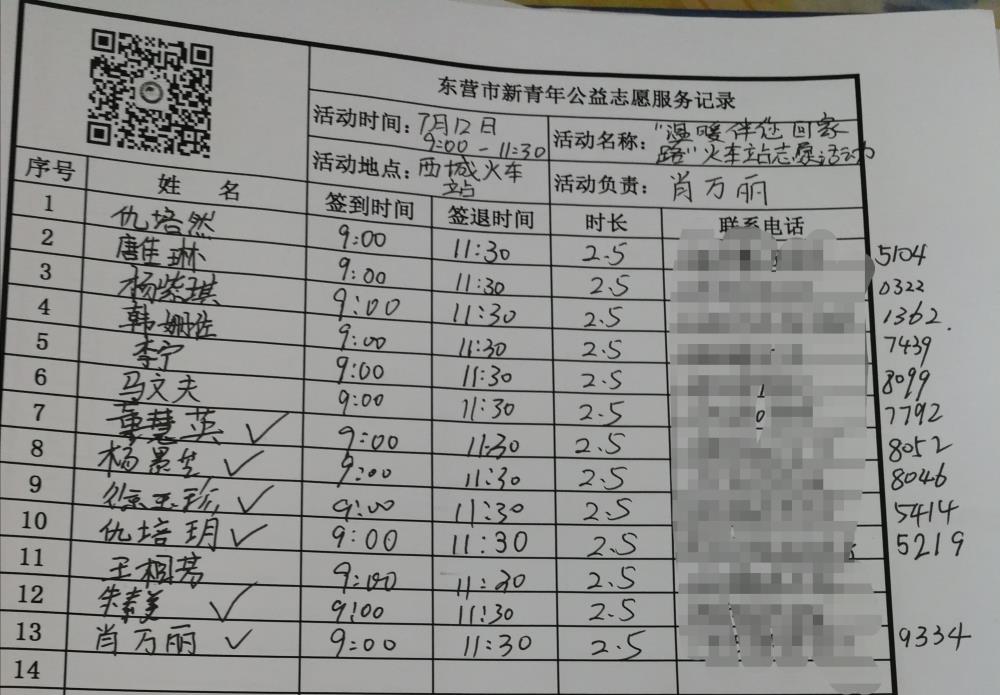 东营市新青年公益志愿服务记录
活动时间：7月12日 9:00-11:30 活动名称：“温暖伴您回家路”火车站志愿活动
活动地点：西城火车站 活动负责：肖万丽
序号 姓 名 签到时间 签退时间 时长 联系电话
1 仇培然 9:00 11:30 2.5 5104
2 唐佳琳 9:00 11:30 2.5 0322
3 杨紫琪 9:00 11:30 2.5 1362.
4 韩姗佐 9:00 11:30 2.5 7439
5 李宁 9:00 11:30 2.5 8099
6 马文夫 9:00 11:30 2.5 7792
7 董慧英 ✓ 9:00 11:30 2.5 8052
8 杨景生 ✓ 9:00 11:30 2.5 8046
9 徐玉珍 ✓ 9:00 11:30 2.5 5414
10 仇培玥 ✓ 9:00 11:30 2.5 5219
11 王桐芳 9:00 11:30 2.5
12 朱素美 ✓ 9:00 11:30 2.5
13 肖万丽 ✓ 9:00 11:30 2.5 9334
14